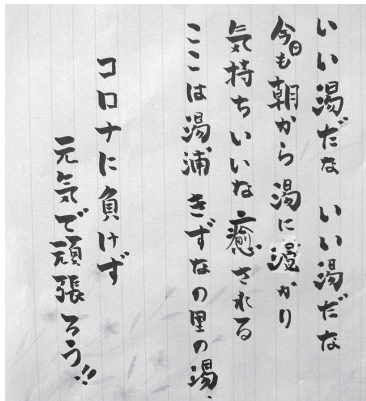 いい湯だな いい湯だな
今日も朝から湯に温かり
気持ちいいな癒される
ここは湯浦 きずなの里の湯.
コロナに負けず
元気で頑張ろう!!